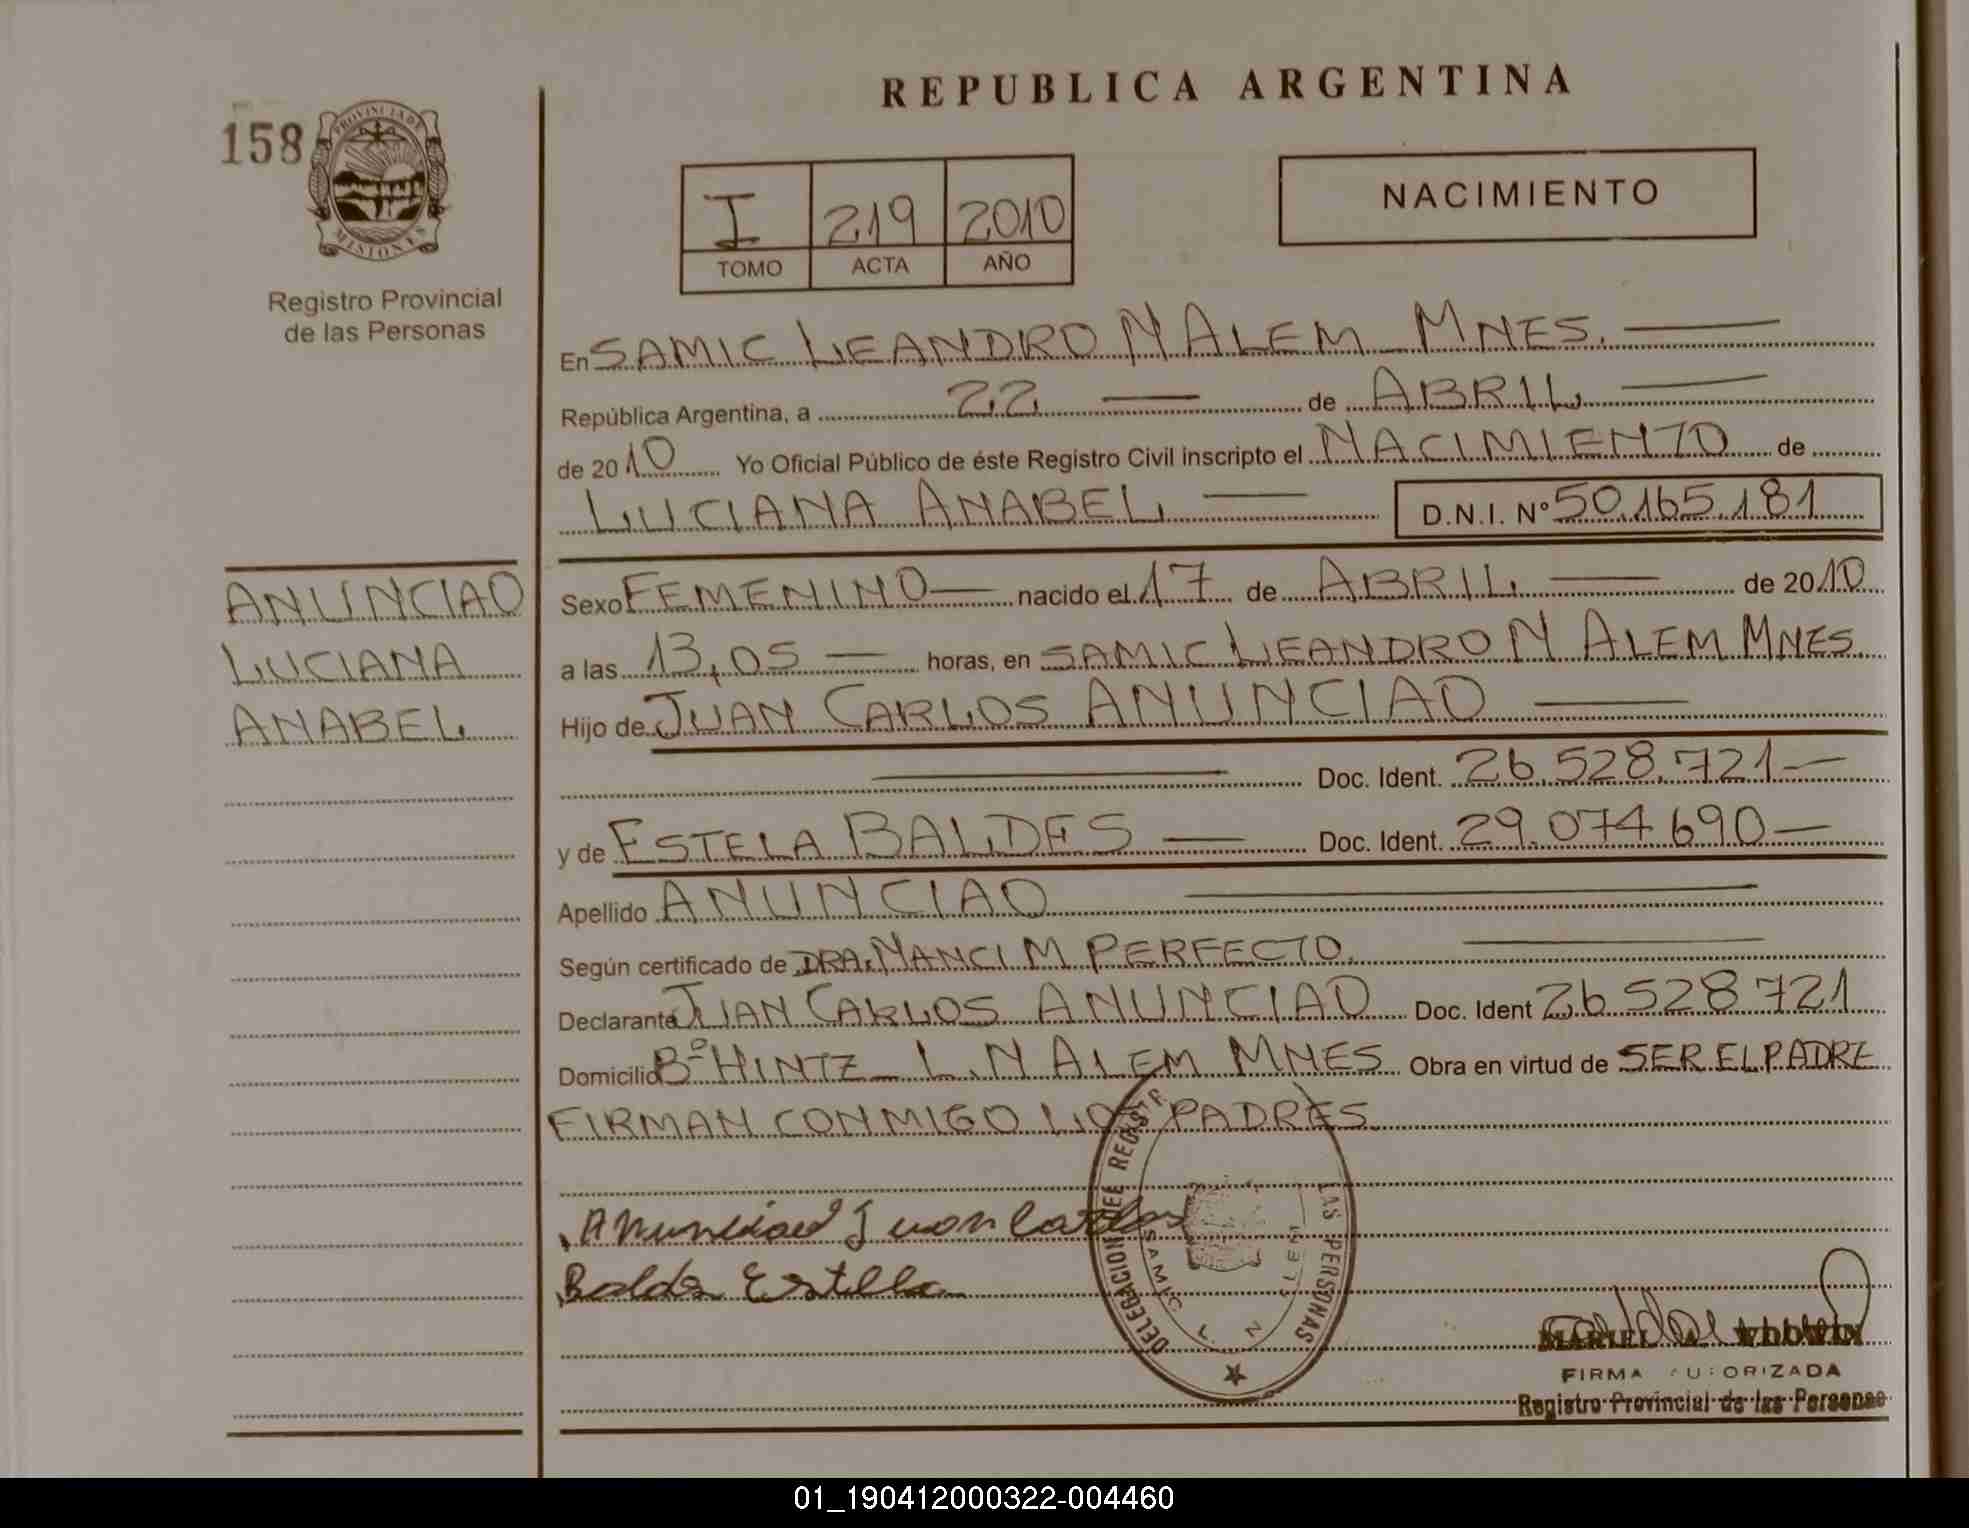 REPUBLICA ARGENTINA
158
PROVINCIA DE
MISIONES
Registro Provincial
de las Personas
I 219 2010
TOMO ACTA AÑO
NACIMIENTO
En SAMIC LEANDRO N ALEM - MNES.
República Argentina, a 22 de ABRIL
de 2010 Yo Oficial Público de éste Registro Civil inscripto el NACIMIENTO de
LUCIANA ANABEL D.N.I. Nº 50.165.181
ANUNCIAO
LUCIANA
ANABEL
Sexo FEMENINO nacido el 17 de ABRIL de 2010
a las 13,05 horas, en SAMIC LEANDRO N ALEM MNES
Hijo de JUAN CARLOS ANUNCIAO
Doc. Ident. 26.528.721
y de ESTELA BALDES Doc. Ident. 29.074.690
Apellido ANUNCIAO
Según certificado de DRA. NANCI M PERFECTO.
Declarante JUAN CARLOS ANUNCIAO Doc. Ident 26 528 721
Domicilio Bº HINTZ - L.N ALEM MNES Obra en virtud de SER EL PADRE
FIRMAN CONMIGO LOS PADRES.
Juan Carlos
DELEGACION DEL REGISTR LAS PERSONAS
SAMIC L. N
FIRMA AUTORIZADA
Registro Provincial de las Personas
01_190412000322-004460